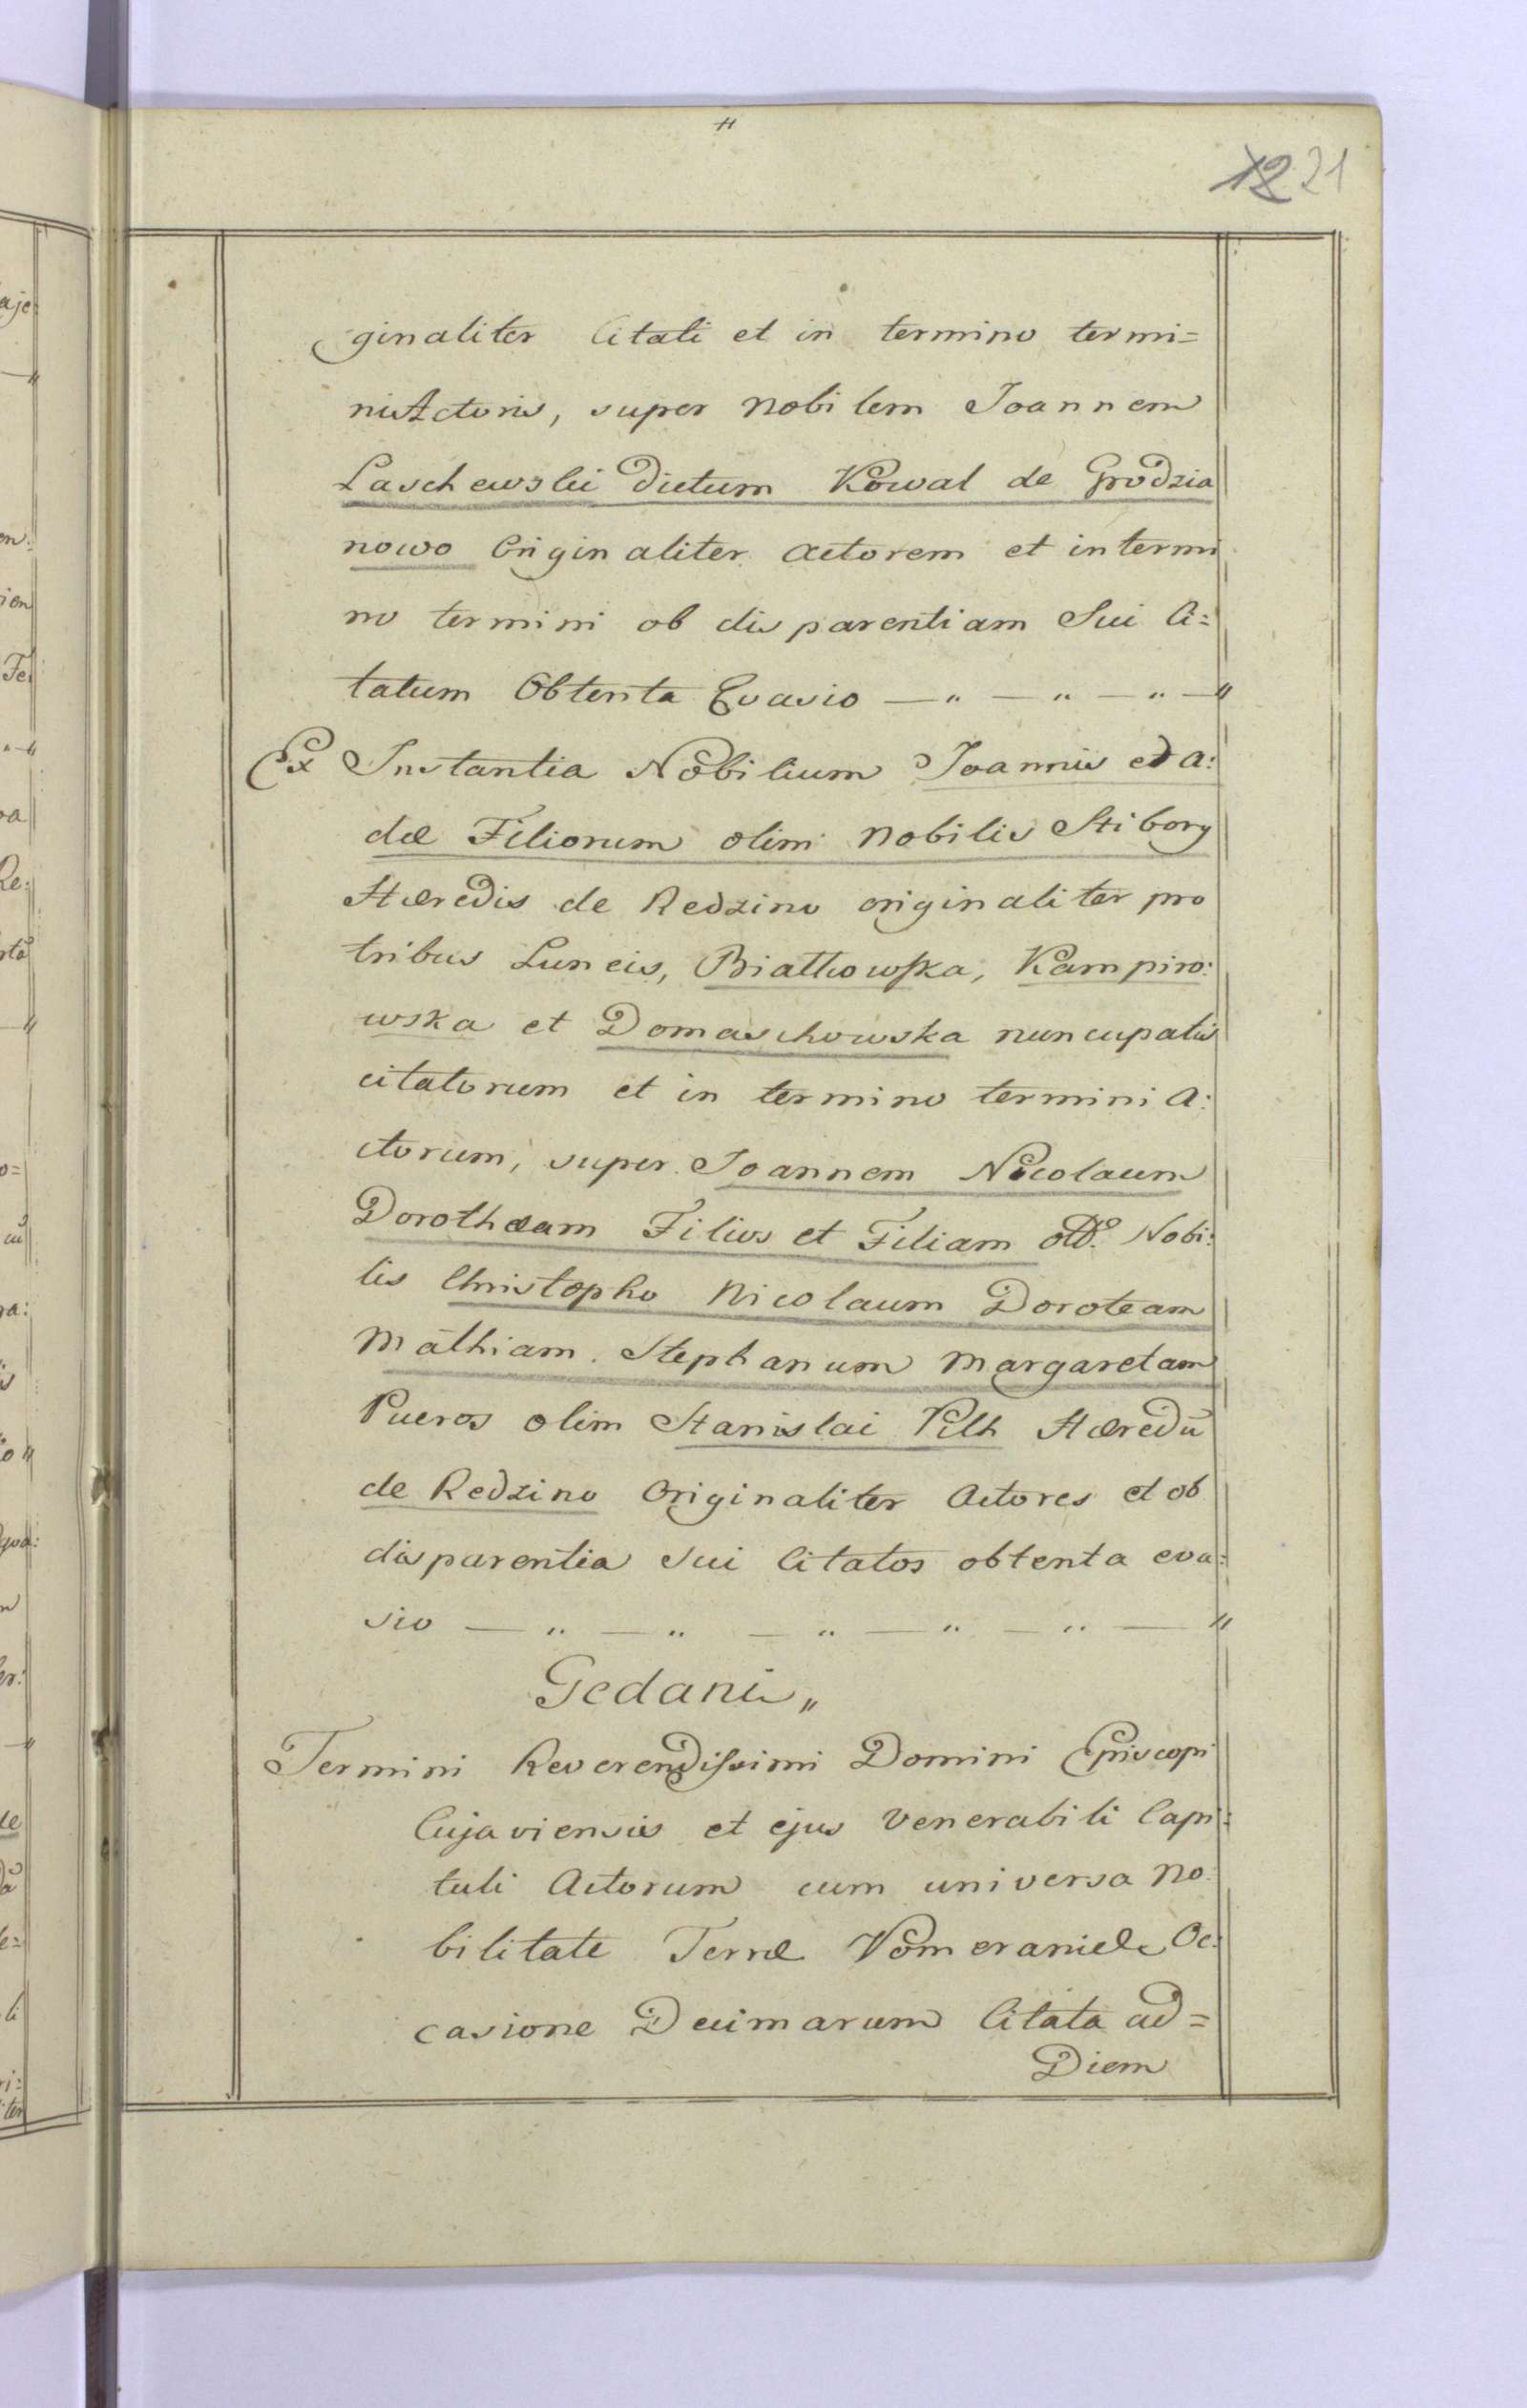 12 21
ginaliter Citati et in termino termi=
nis Actoris, super Nobilem Joannem
Laschewski dictum Kowal de Grodzia
nowo Originaliter Actorem et in termi
no termini ob disparentiam Sui Ci=
tatum Obtenta Evasio — „ — „ — „ — „
Ex Instantia Nobilium Joannis et A:
dæ Filiorum olim Nobilis Stibory
Hæredis de Redzino originaliter pro
tribus Luneis, Biatkowska, Kampiro:
wska et Domaschowska nuncupatis
citatorum et in termino termini A:
ctorum, super Joannem Nicolaum
Dorothæam Filios et Filiam Nobi:
lis Christopho Nicolaum Doroteam
Mathiam Stephanum Margaretam
Pueros olim Stanislai Pilh Hæredū
de Redzino Originaliter Actores et ob
disparentia Sui Citatos obtenta eva:
sio — „ — „ — „ — „ — „ — „
Gedani „
Termini Reverendissimi Domini Episcopi
Cujaviensis et ejus Venerabili Capi:
tuli Actorum cum universa No:
bilitate Terræ Pomeraniæ Oc:
casione Decimarum Citata ad=
Diem